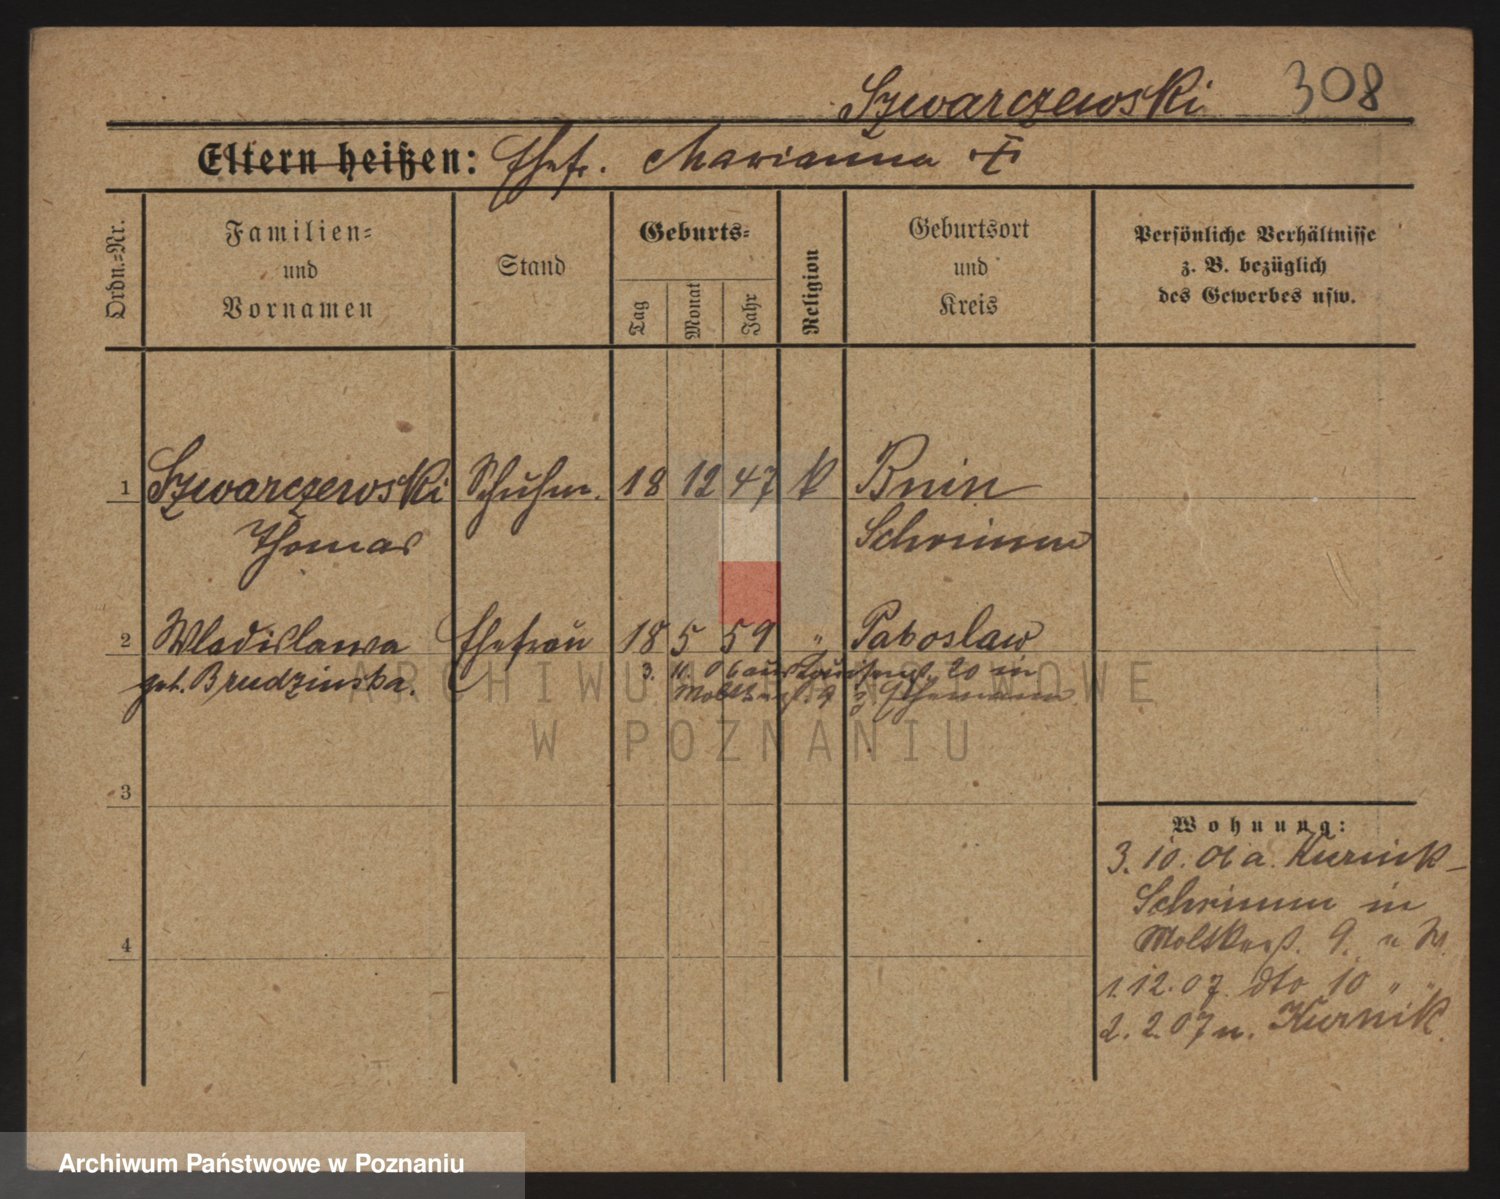 Szwarczewski 308
Eltern heißen: Ehefr. Marianna
Ordn.=Nr.
Familien=
und
Vornamen
Stand
Geburts=
Tag
Monat
Jahr
Religion
Geburtsort
und
Kreis
Persönliche Verhältnisse
z. B. bezüglich
des Gewerbes usw.
1 Szwarczewski Schuhm. 18 12 47 k Bnin
Thomas Schrimm
2 Wladislawa Ehefrau 18 5 59 " Paboslaw
geb. Brudzinska. 3. 11. 06 aus Louisenst. 20 in
Moltkestr. 9
3
4
Wohnung:
3. 10. 06 a. Kurnik-
Schrimm in
Moltkestr. 9.
1. 12. 07. dto 10 " "
2. 2. 07 n. Kurnik.
ARCHIWUM PAŃSTWOWE
W POZNANIU
Archiwum Państwowe w Poznaniu